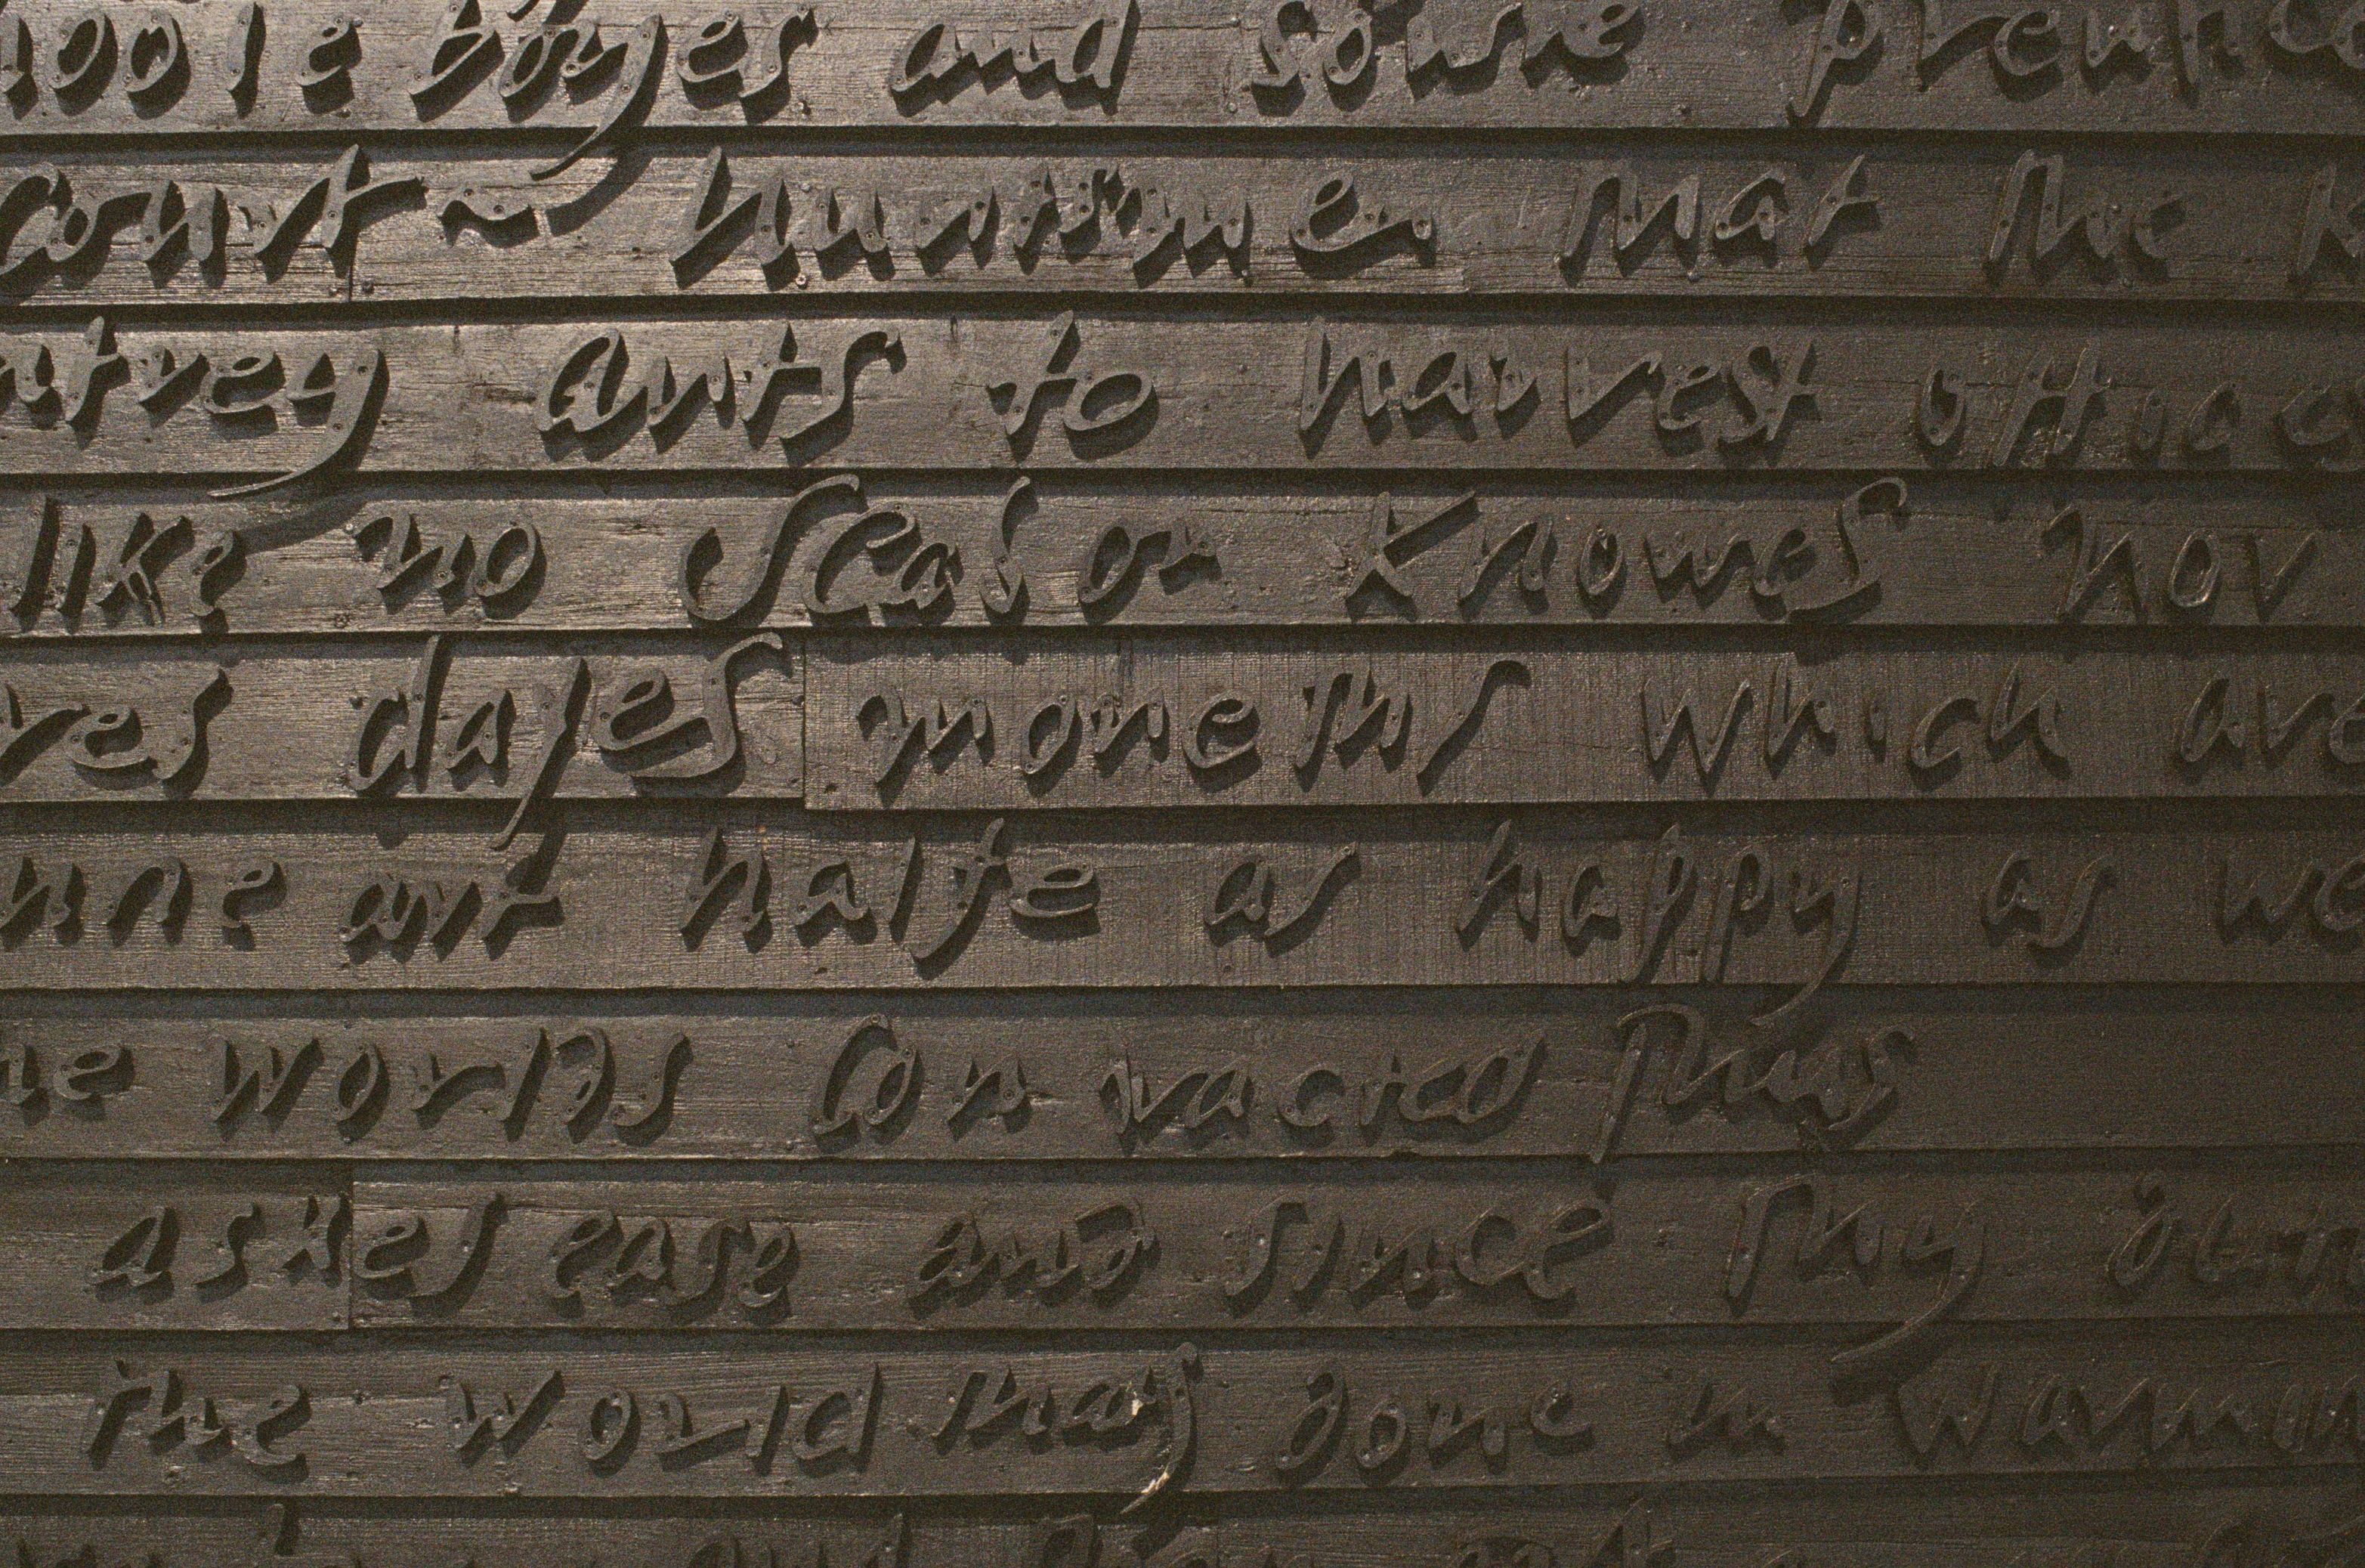 hoole boyes and some prentice
Court-huntsmen that the K
ntrey ants to harvest offices
like no season knowes nor
res dayes moneths which are
nne art halfe as happy as we
he worlds contracted thus
ashes ease and since thy dut
the world thats done in warmin